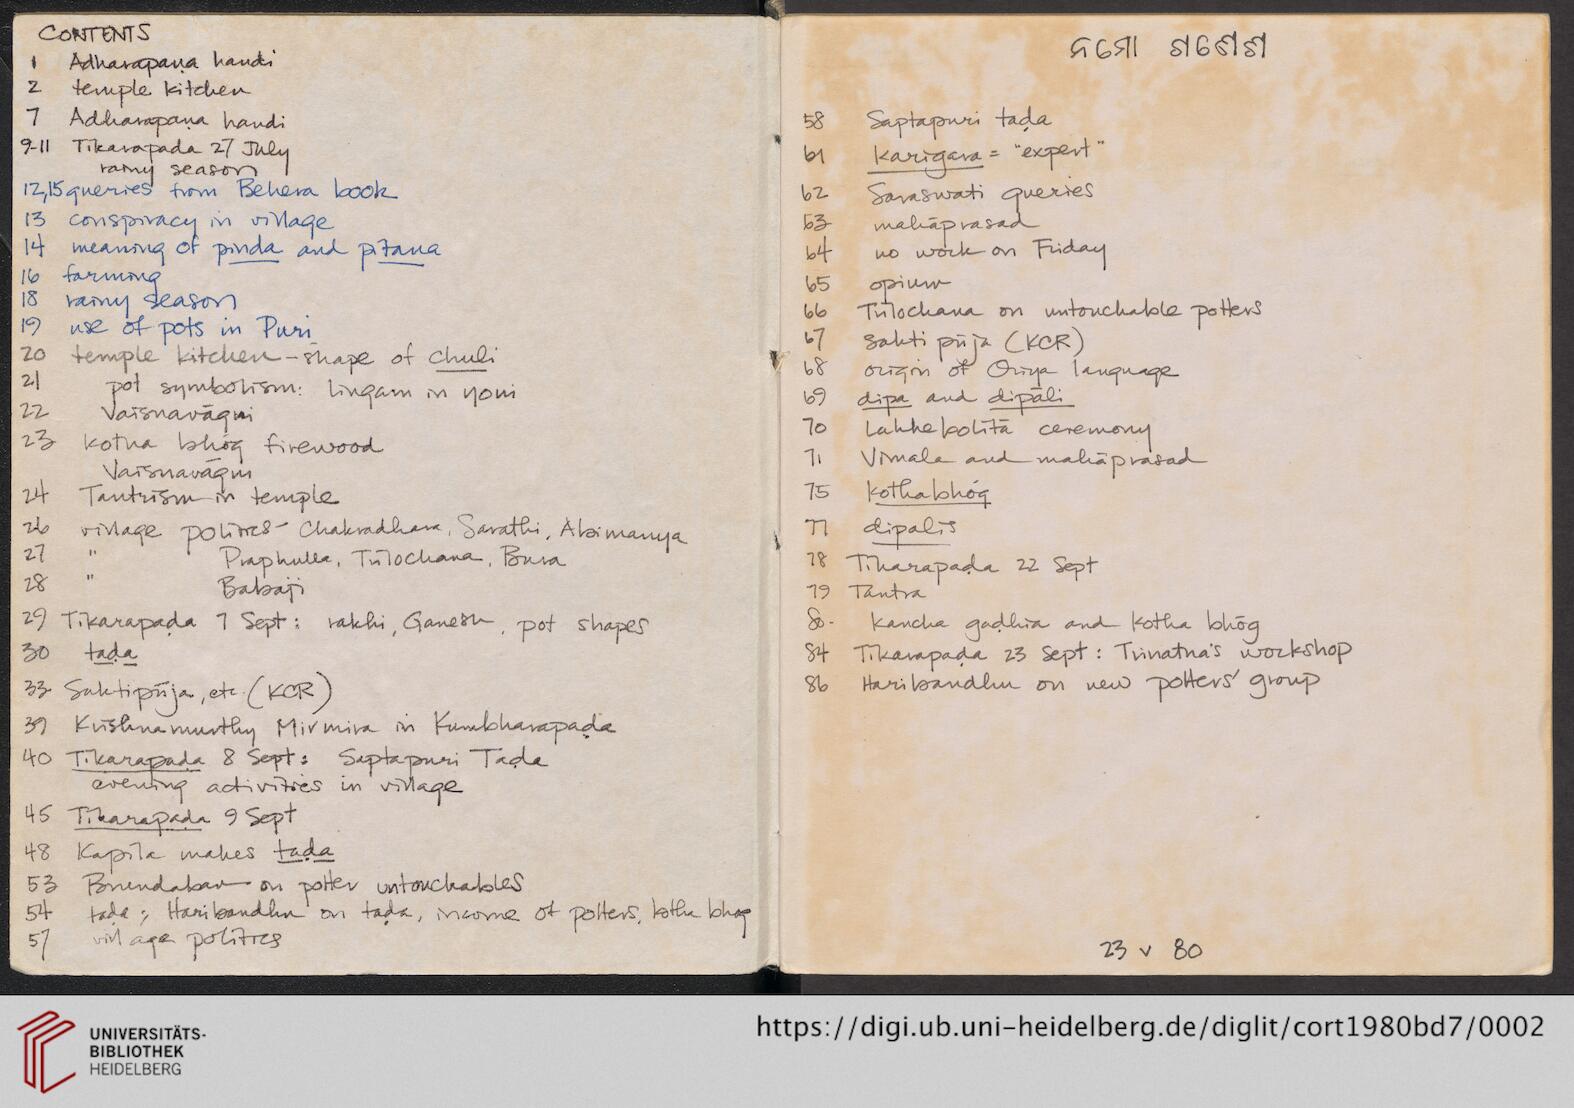 CONTENTS
1 Adharapaṇa handi
2 temple kitchen
7 Adharapaṇa handi
9-11 Tikarapada 27 July
rainy season
12,15 queries from Behera book
13 conspiracy in village
14 meaning of pinda and piṭana
16 farming
18 rainy season
19 use of pots in Puri
20 temple kitchen - shape of chuli
21 pot symbolism: lingam in yoni
22 Vaisnavāgni
23 kotha bhōg firewood
Vaisnavāgni
24 Tantrism in temple
26 village politics - Chakradhara, Sarathi, Abimanya
27 " Praphulla, Trilochana, Bura
28 " Babaji
29 Tikarapaḍa 7 Sept: rakhi, Ganesh, pot shapes
30 taḍa
33 Saktipūja, etc. (KCR)
39 Krishnamurthy Mirmira in Kumbharapaḍa
40 Tikarapaḍa 8 Sept: Saptapuri Taḍa
evening activities in village
45 Tikarapaḍa 9 Sept
48 Kapila makes taḍa
53 Brundaban on potter untouchables
54 taḍa; Haribandhu on taḍa, income of potters, kotha bhog
57 village politics
ନମୋ ଗଣେଶ
58 Saptapuri taḍa
61 Karigara = "expert"
62 Saraswati queries
63 mahāprasad
64 no work on Friday
65 opium
66 Trilochana on untouchable potters
67 Sakti pūja (KCR)
68 origin of Oriya language
69 dipa and dipāli
70 Lakhe bolitā ceremony
71 Vimala and mahāprasad
75 Kothabhōg
77 dipalis
78 Tikarapaḍa 22 Sept
79 Tantra
80- Kancha gaḍhia and Kotha bhōg
84 Tikarapaḍa 23 Sept: Trinatha's workshop
86 Haribandhu on new potters' group
23 v 80
UNIVERSITÄTS-
BIBLIOTHEK
HEIDELBERG
https://digi.ub.uni-heidelberg.de/diglit/cort1980bd7/0002